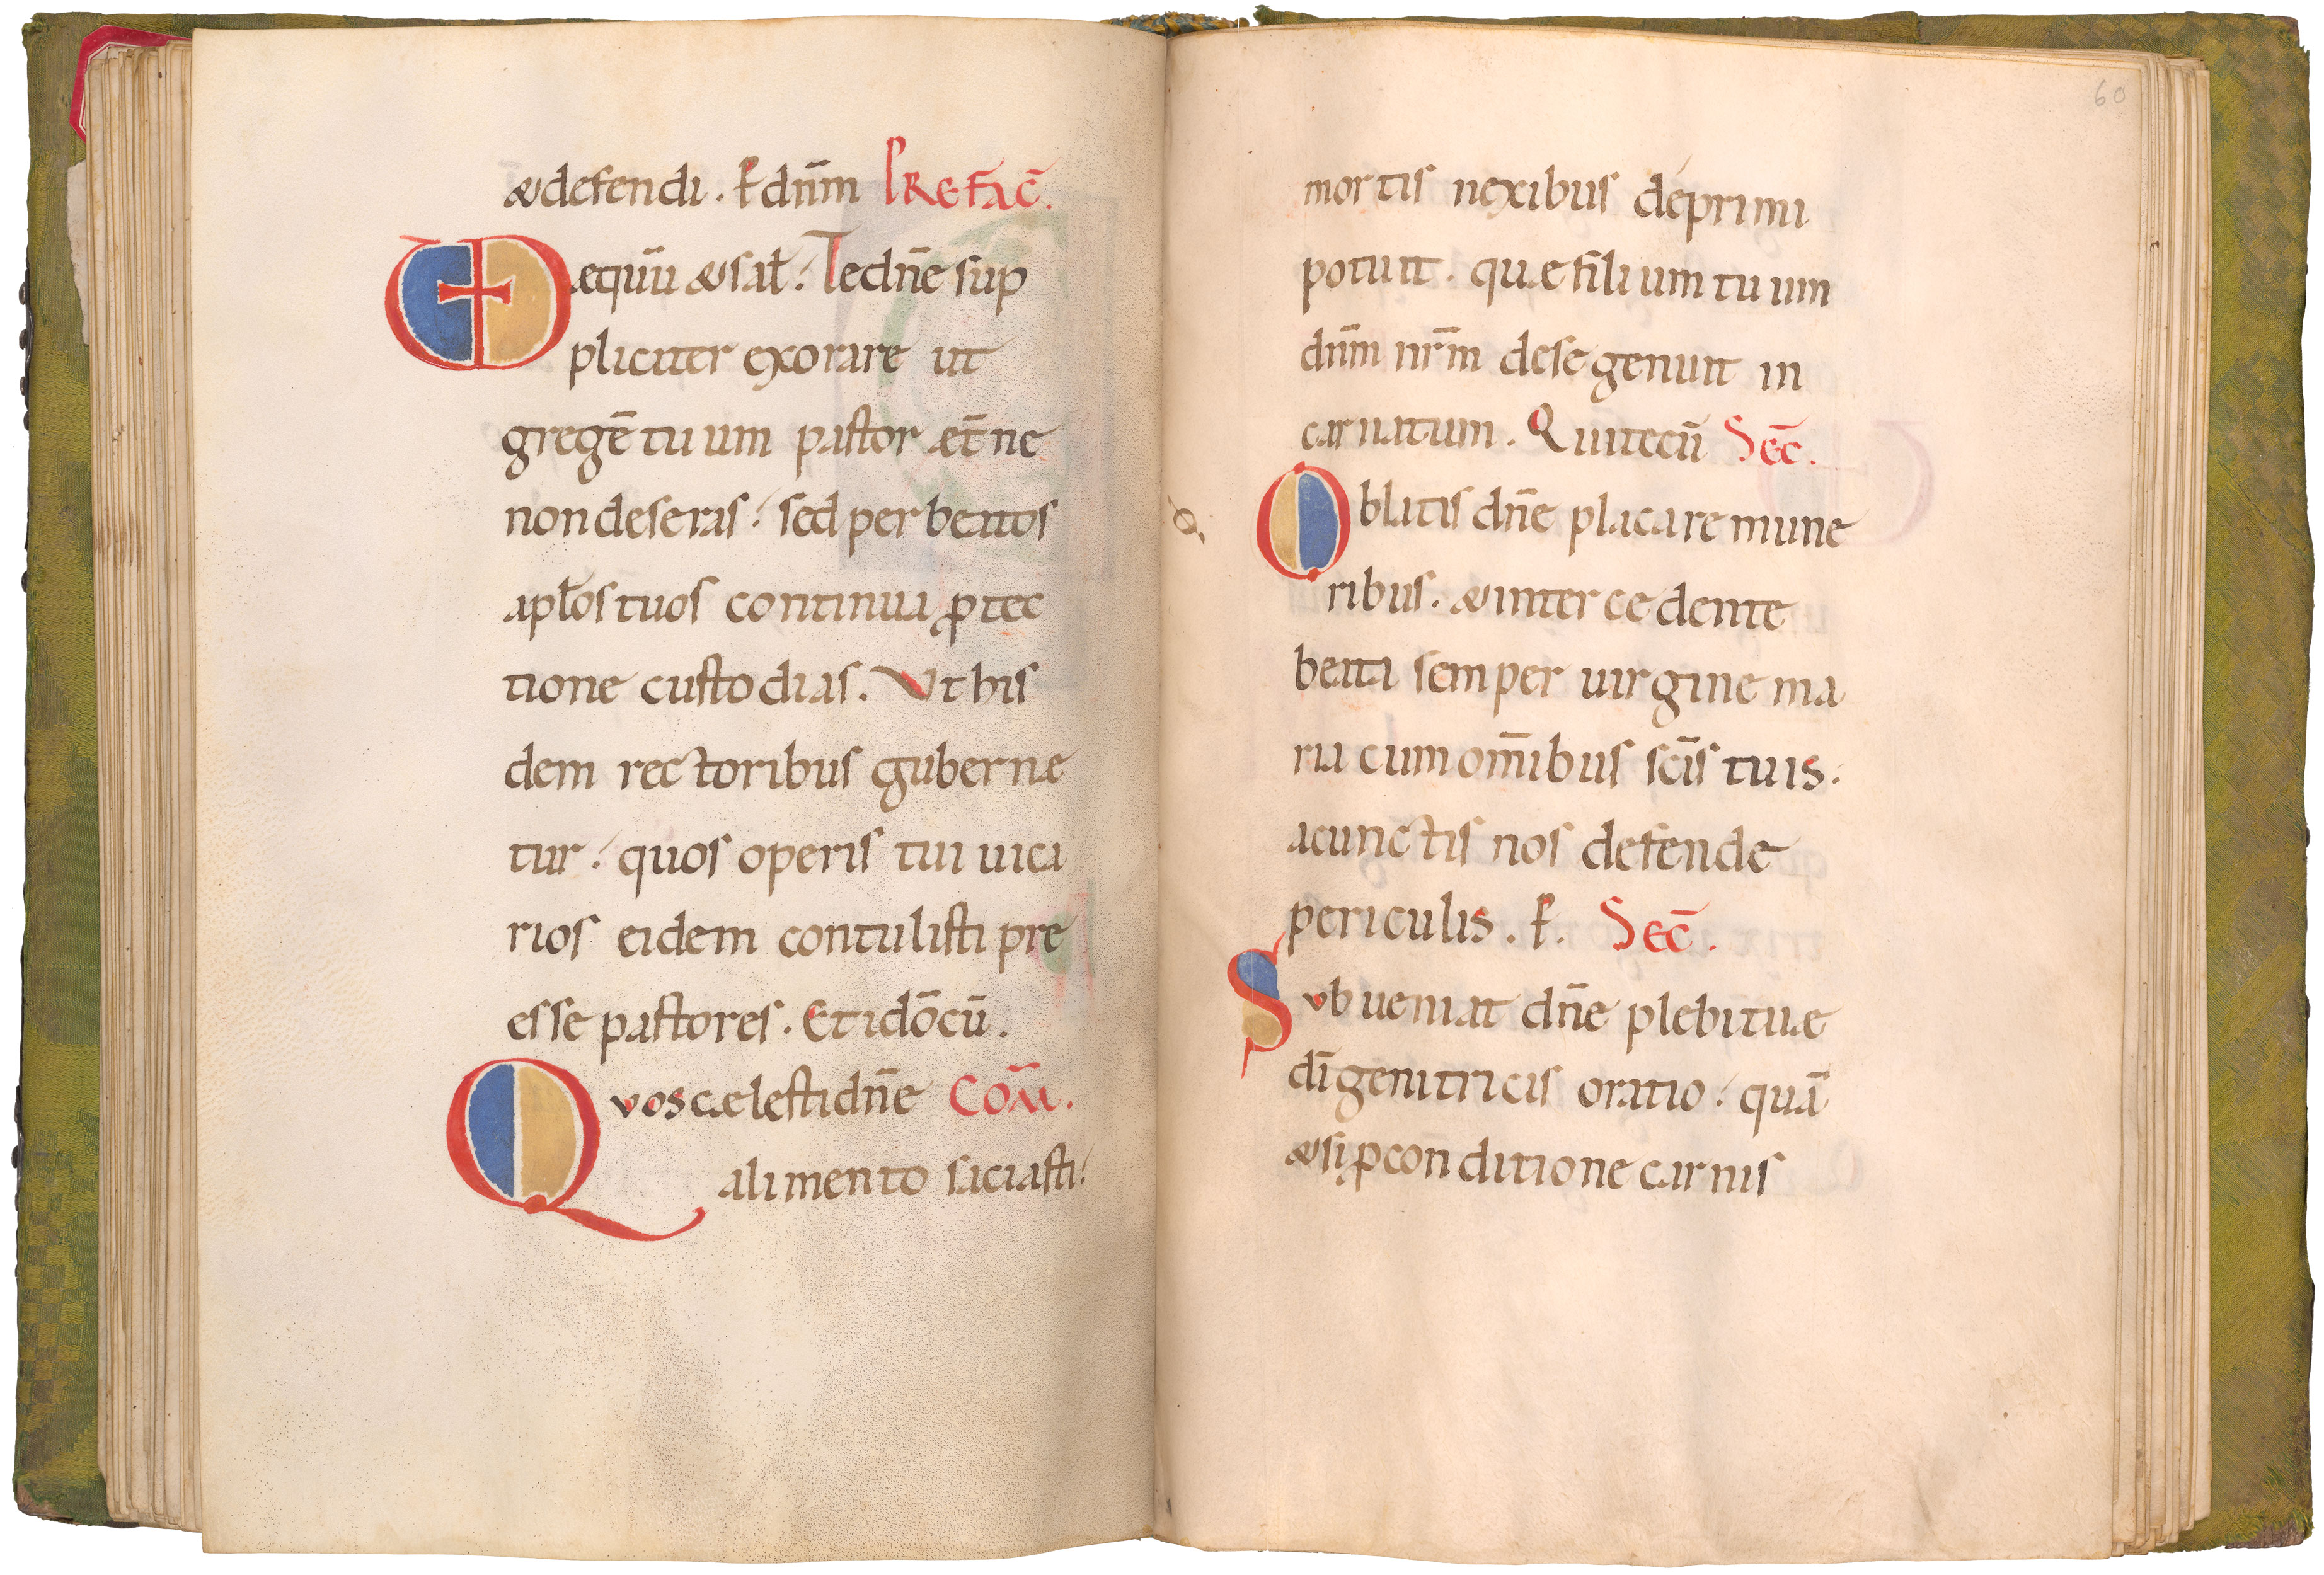 &defendi. P dñm PREFAC̄.
VD æquū &sal̄. Te dñe sup
pliciter exorare ut
gregē tuum pastor æt̄ne
non deseras. sed per beatos
apl̄os tuos continua ꝓtec
tione custodias. Ut his
dem rectoribus gubernę
tur. quos operis tui uica
rios eidem contulisti pre
esse pastores. Et idōcū.
Quos cælesti dñe COM̄.
alimento saciasti.
60
mortis nexibus deprimi
potuit. quæ filium tuum
dñm nr̄m de se genuit in
carnatum. Qui tecū SEC̄.
Oblatis dñe placare mune
ribus. & intercedente
beata semper uirgine ma
ria cum om̄ibus scīs tuis.
a cunctis nos defende
periculis. P. SEC̄.
Subueniat dñe plebi tuæ
dī genitricis oratio. quā
&si ꝓ conditione carnis